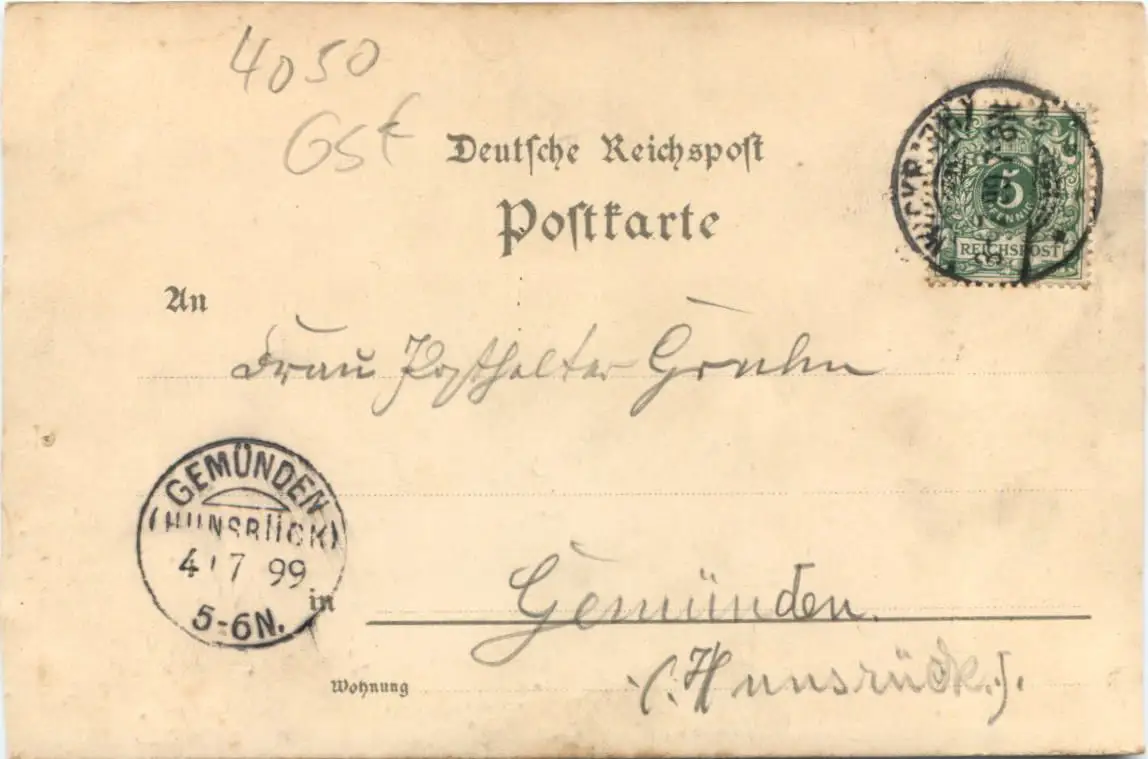 4050
GSt
Deutsche Reichspost
Postkarte
5
PFENNIG
REICHSPOST
An
Frau Posthalter
GEMÜNDEN
(HUNSRÜCK)
4 7 99
5-6N.
in
Gemünden.
Wohnung
(Hunsrück.).